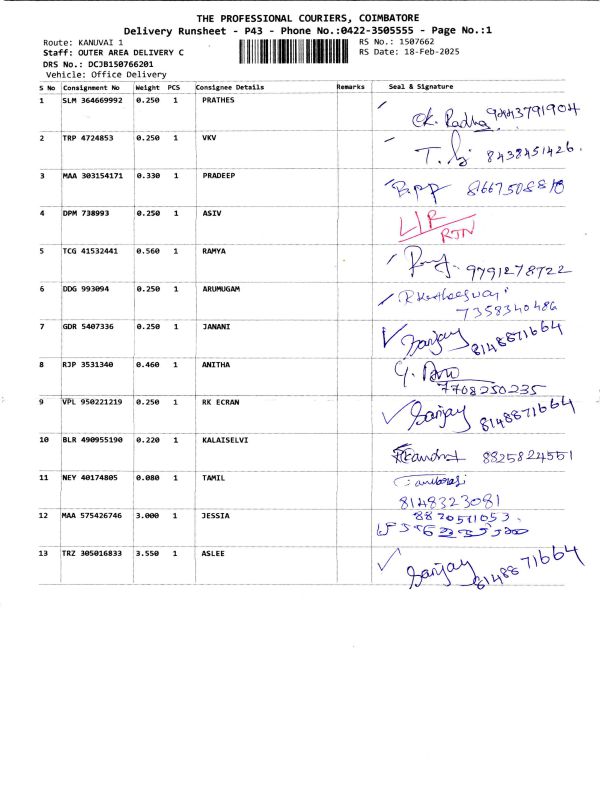 THE PROFESSIONAL COURIERS, COIMBATORE
Delivery Runsheet - P43 - Phone No.:0422-3505555 - Page No.:1
Route: KANUVAI 1 RS No.: 1507662
Staff: OUTER AREA DELIVERY C RS Date: 18-Feb-2025
DRS No.: DCJB150766201
Vehicle: Office Delivery
S No Consignment No Weight PCS Consignee Details Remarks Seal & Signature
1 SLM 364669992 0.250 1 PRATHES
Ok. Radha 9443791904
2 TRP 4724853 0.250 1 VKV
8438451426.
3 MAA 303154171 0.330 1 PRADEEP
4 DPM 738993 0.250 1 ASIV
RTN
5 TCG 41532441 0.560 1 RAMYA
9791278722
6 DDG 993094 0.250 1 ARUMUGAM
7358340486
7 GDR 5407336 0.250 1 JANANI
Sanjay 8148871664
8 RJP 3531340 0.460 1 ANITHA
7708250235
9 VPL 950221219 0.250 1 RK ECRAN
Sanjay 8148871664
10 BLR 490955190 0.220 1 KALAISELVI
8825824551
11 NEY 40174805 0.080 1 TAMIL
8148323081
12 MAA 575426746 3.000 1 JESSIA
8820511053.
13 TRZ 305016833 3.550 1 ASLEE
Sanjay 8148871664